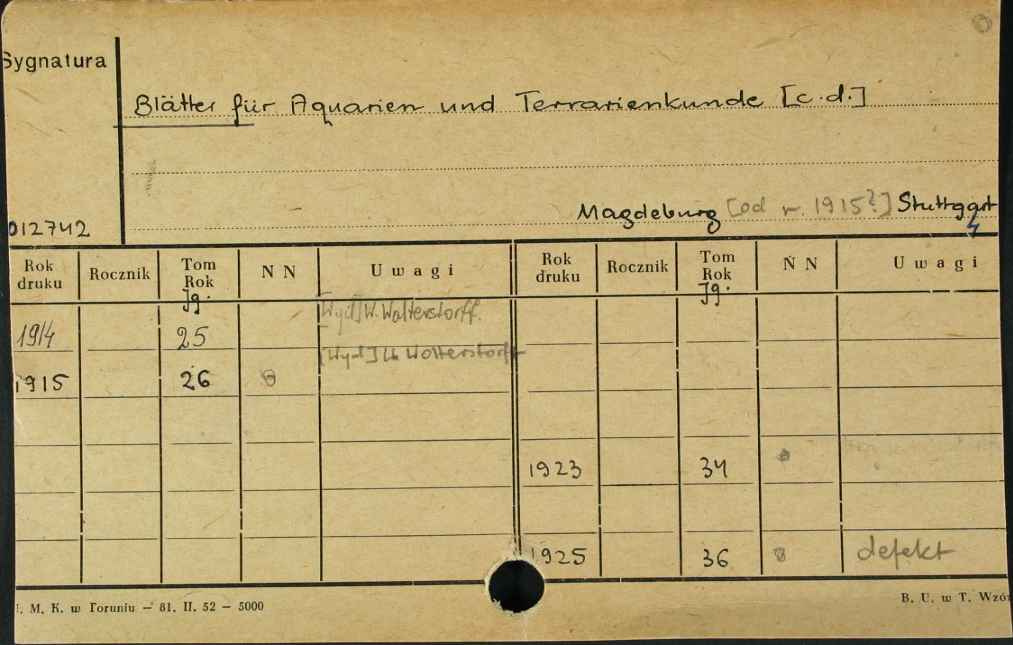 Sygnatura
Blätter für Aquarien und Terrarienkunde [c.d.]
Magdeburg [od r. 1915?] Stuttgart
012742
Rok druku Rocznik Tom Rok N N Uwagi Rok druku Rocznik Tom Rok N N Uwagi
Jg. Jg.
[Wyd] W. Wolterstorff.
1914 25
[Wyd] W Wolterstorff
1915 26
1923 34
1925 36 defekt
. M. K. w Toruniu — 81. II. 52 — 5000
B. U. w T. Wzór